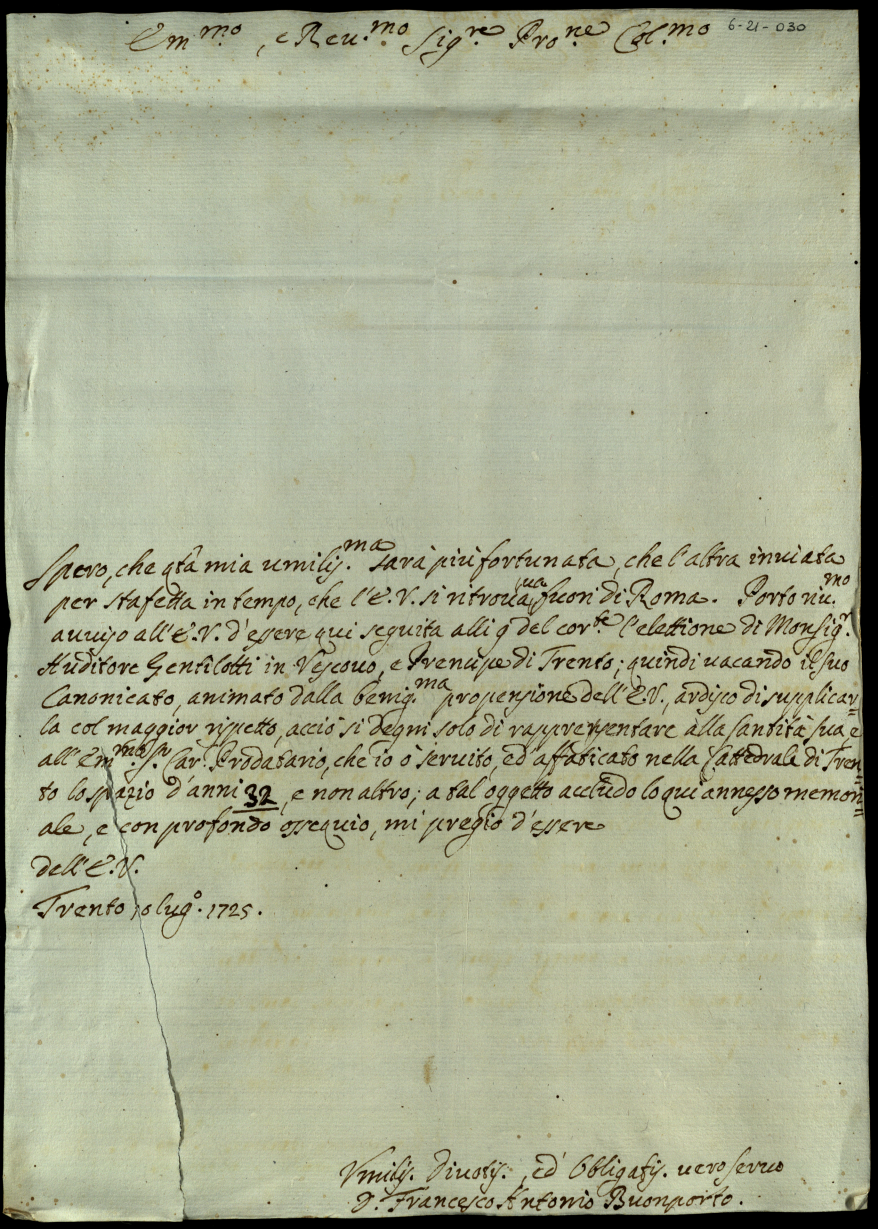 6-21-030
Em.mo, e Reu.mo Sig.re Pro.ne Col.mo
Spero, che qta mia umiliss.ma sarà più fortunata, che l'altra inuiata
per stafetta in tempo, che l'E.V. si ritrouaua fuori di Roma. Porto riu.mo
auuiso all'E.V. d'essere qui seguita alli 9 del cor.te l'elettione di Monsig.r
Auditore Gentilotti in Vescouo, e Prencipe di Trento; quindi uacando il suo
Canonicato, animato dalla benig.ma propensione dell'E.V., ardisco di supplicar=
la col maggior rispetto, acciò si degni solo di rappresentare alla Santità sua e
all'Em.mo Sr Car. Prodatario, che io ò seruito, ed affaticato nella Cattedrale di Tren=
to lo spazio d'anni 32, e non altro; a tal oggetto accludo lo qui annesso memori=
ale, e con profondo ossequio, mi pregio d'essere
dell'E.V.
Trento 10 lug.o 1725.
Vmiliss. Diuotiss., ed Obbligatiss. uero seruo
D. Francesco Antonio Buonporto.